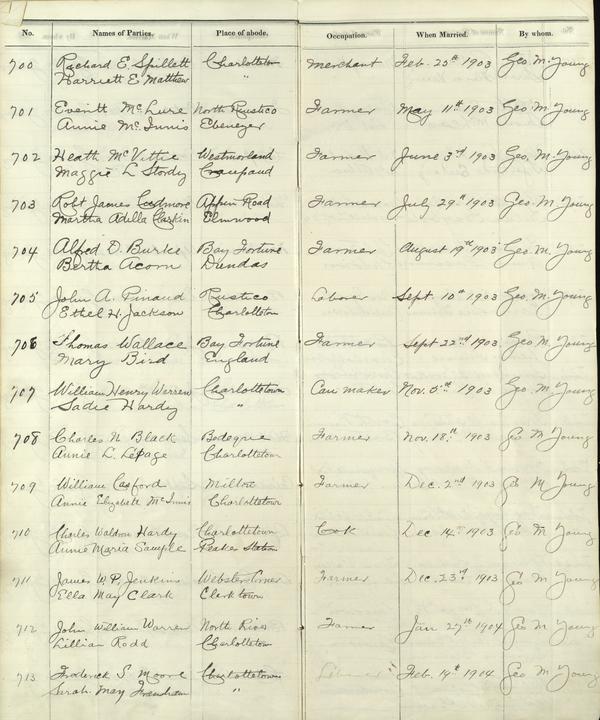 No. Names of Parties. Place of abode. Occupation. When Married. By whom.
700 Richard E. Spillett Charlottetown Merchant Feb. 25th 1903 Geo. M. Young
Harriett E. Matthew "
701 Everitt McLure North Rustico Farmer May 11th 1903 Geo M. Young
Annie McInnis Ebenezer
702 Heath McVittie Westmorland Farmer June 3rd 1903 Geo. M. Young
Maggie L Stordy Crapaud
703 Robt James Appin Road Farmer July 29th 1903 Geo. M. Young
Martha Adilla Larkin Elmwood
704 Alfred D. Burke Bay Fortune Farmer August 19th 1903 Geo M. Young
Bertha Acorn Dundas
705 John A. Pinaud Rustico Laborer Sept. 10th 1903 Geo. M. Young
Ethel H. Jackson Charlottetown
706 Thomas Wallace Bay Fortune Farmer Sept 22nd 1903 Geo M. Young
Mary Bird England
707 William Henry Warren Charlottetown Can maker Nov. 5th 1903 Geo M. Young
Sadie Hardy "
708 Charles N Black Bedeque Farmer Nov. 18th 1903 Geo M Young
Annie L. LePage Charlottetown
709 William Milton Farmer Dec. 2nd 1903 Geo M Young
Annie Elizabeth McInnis Charlottetown
710 Charles Waldron Hardy Charlottetown Cook Dec 14th 1903 Geo M Young
Annie Maria Sample Peakes Station
711 James W. P. Jenkins Websters Corner Farmer Dec. 23rd 1903 Geo M Young
Ella May Clark Clark town
712 John William Warren North River Farmer Jan 27th 1904 Geo M Young
Lillian Rodd Charlottetown
713 Frederick S. Moore Charlottetown Laborer Feb. 14th 1904 Geo M Young
Sarah May "